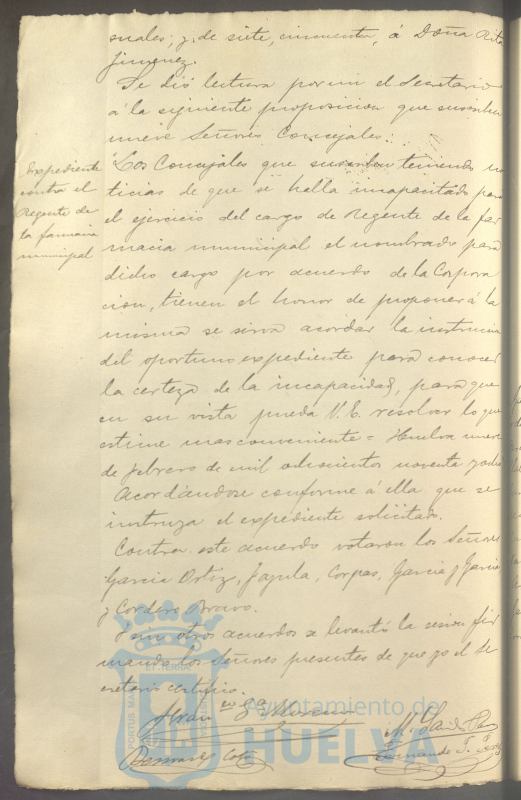 suales; y, de siete, cincuenta, á Doña Rita
Jimenez.
Se dió lectura por mi el Secretario
á la siguiente proposicion que suscriben
nueve Señores Concejales:
Expediente
contra el
Regente de
la farmacia
municipal
Los Concejales que suscriben teniendo no
ticias de que se halla incapacitado para
el ejercicio del cargo de Regente de la far
macia municipal el nombrado para
dicho cargo por acuerdo de la Corpora
cion, tienen el honor de proponer á la
misma se sirva acordar la instruccion
del oportuno expediente para conocer
la certeza de la incapacidad, para que
en su vista pueda V. E. resolver lo que
estime mas conveniente = Huelva nueve
de febrero de mil ochocientos noventa y ocho
Acordándose conforme á ella que se
instruya el expediente solicitado.
Contra este acuerdo votaron los Señores
Garcia Ortiz, Jagula, Corpas, Garcia y Garcia
y Cordero Bravo.
Y sin otros acuerdos se levantó la sesion fir
mando los Señores presentes de que yo el Se
cretario certifico.
PORTUS MA
ET TERRAE
Ayuntamiento de
HUELVA